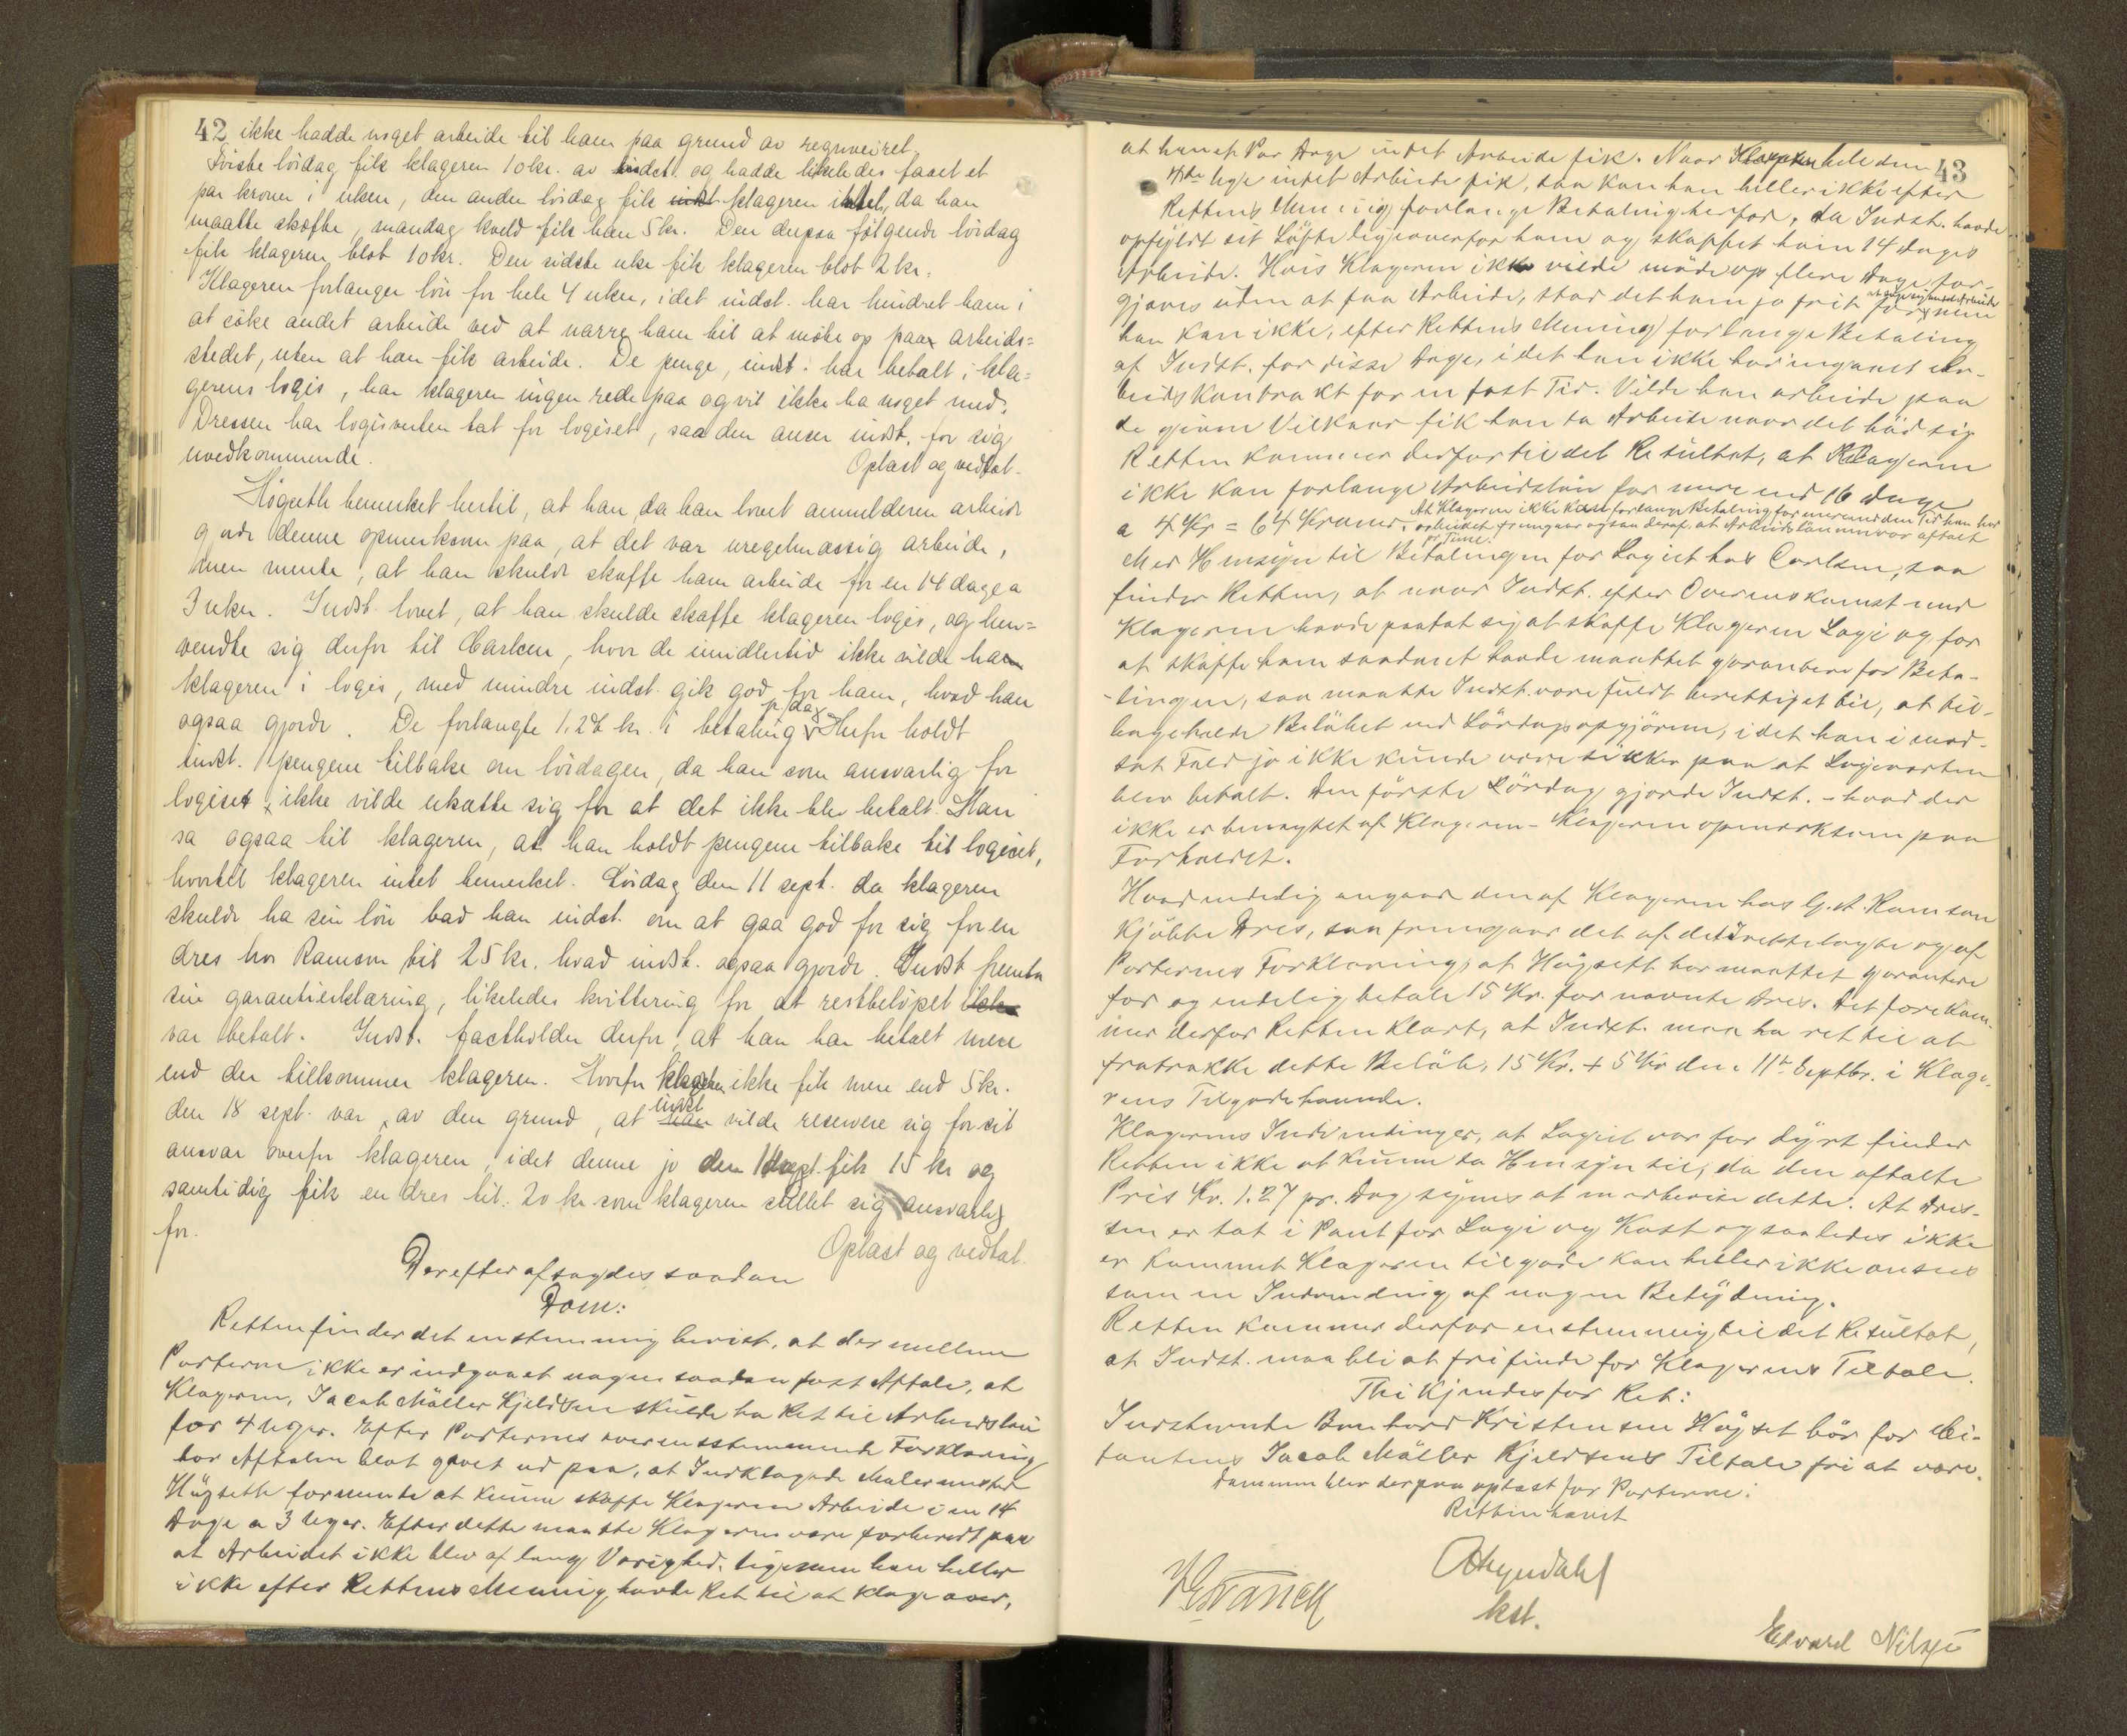 42 ikke hadde noget arbeide til ham paa grund av regnveiret.
Første lördag fik klageren 10 kr. av indst. og hadde likeledes faaet et
par kroner i uken, den anden lördag fik klageren intet, da han
maatte skofte, mandag kveld fik han 5 kr. Den derpaa følgende lördag
fik klageren blot 10 kr. Den sidste uke fik klageren blot 2 kr.
Klageren forlanger lön for hele 4 uker, idet indst. har hindret ham i
at söke andet arbeide ved at narre ham til at møte op paa arbeids=
stedet, uten at han fik arbeide. De penge, indst. har betalt i kla=
gerens logis, har klageren ingen rede paa og vil ikke ha noget med.
Dressen har logisverten tat for logiset, saa den anser indst. for sig
uvedkommende.
Oplæst og vedtat.
Högseth bemerket hertil, at han, da han lovet anmelderen arbeide
gjorde denne opmerksom paa, at det var uregelmæssig arbeide,
men mente, at han skulde skaffe ham arbeide for en 14 dage a
3 uker. Indst. lovet, at han skulde skaffe klageren logis, og hen=
vendte sig derfor til Carlsen, hvor de imidlertid ikke vilde ha
klageren i logis, med mindre indst. gik god for ham, hvad han
ogsaa gjorde. De forlangte 1.28 kr. i betaling pr dag. Herfor holdt
indst. pengene tilbake om lördagen, da han som ansvarlig for
logiset ikke vilde utsætte sig for at det ikke blev betalt. Han
sa ogsaa til klageren, at han holdt pengene tilbake til logiset,
hvortil klageren intet bemerket. Lördag den 11 sept. da klageren
skulde ha sin lön bad han indst. om at gaa god for sig for en
dres hos Ramson til 25 kr. hvad indst. ogsaa gjorde. Indst fremla
sin garantierklæring, likeledes kvittering for at restbelöpet
var betalt. Indst. fastholder derfor, at han har betalt mere
end der tilkommer klageren. Hvorfor klageren ikke fik mere end 5 kr.
den 18 sept. var av den grund, at indst vilde reservere sig for sit
ansvar overfor klageren, idet denne jo den 11 sept. fik 15 kr og
samtidig fik en dres til 20 kr som klageren stillet sig ansvarlig
for.
Oplæst og vedtat.
Derefter afsagdes saadan
Dom:
Retten finder det enstemmig bevist, at der mellem
Parterne ikke er indgaaet nogen saadan fast Aftale, at
Klageren, Jacob Möller Kjeldsen skulde ha Ret til Arbeidslön
for 4 Uger. Efter Parternes overensstemmende Forklaring
har Aftalen blot gaaet ud paa, at Indklagede Malermester
Högseth formente at kunne skaffe Klageren Arbeide i en 14
Dage a 3 Uger. Efter dette maatte Klageren være forberedt paa
at Arbeidet ikke blev af lang Varighed, ligesom han heller
ikke efter Rettens Mening havde Ret til at klage over,
43
at han et Par Dage intet Arbeide fik. Naar Klageren hele den
4de Uge intet Arbeide fik, saa kan han heller ikke efter
Rettens Mening forlange Betaling herfor, da Indst. havde
opfyldt sit Löfte ligeoverfor ham og skaffet ham 14 Dages
Arbeide. Hvis Klageren ikke vilde möde op flere Dage for-
gjæves uden at faa Arbeide, stod det ham jo frit for, men
han kan ikke, efter Rettens Mening forlange Betaling
af Indst. for disse Dage, idet han ikke har indgaaet Ar-
beidskontrakt for en fast Tid. Vilde han arbeide paa
de givne Vilkaar fik han ta Arbeide naar det böd sig
Retten kommer derfor til det Resultat, at Klageren
ikke kan forlange Arbeidslön for mere end 16 Dage
a 4 Kr = 64 Kroner. At Klageren ikke kan forlange Betaling for mere end den Tid han har
arbeidet fremgaar ogsaa deraf, at Arbeidslönnen var aftalt
pr Time.
Med Hensyn til Betalingen for Logiet hos Carlsen, saa
finder Retten, at naar Indst. efter Overenskomst med
Klageren havde paatat sig at skaffe Klageren Logi og for
at skaffe ham saadant havde maattet garantere for Beta-
lingen, saa maatte Indst. være fuldt berettiget til, at til-
bageholde Belöbet ved Lördagsopgjören, idet han i mod-
sat Fald jo ikke kunde være sikker paa at Logiverten
blev betalt. Den förste Lördag gjorde Indst. - hvad der
ikke er benegtet af Klageren - Klageren opmerksom paa
Forholdet.
Hvad endelig angaar den af Klageren hos G. A. Ramson
kjöbte Dres, saa fremgaar det af det Irettelagte og af
Parternes Forklaring, at Högseth har maattet garantere
for og endelig betale 15 Kr. for nævnte Dres. Det forekom-
mer derfor Retten klart, at Indst. maa ha ret til at
fratrække dette Belöb, 15 Kr. + 5 Kr den 11te Septbr. i Klage-
rens Tilgodehavende.
Klagerens Indvendinger, at Logiet var for dyrt finder
Retten ikke at kunne ta Hensyn til, da den aftalte
Pris Kr. 1.27 pr. Dag synes at modbevise dette. At Dres-
sen er tat i Pant for Logi og Kost og saaledes ikke
er kommet Klageren tilgode kan heller ikke ansees
som en Indvending af nogen Betydning.
Retten kommer derfor enstemmig til det Resultat,
at Indst. maa bli at frifinde for Klagerens Tiltale.
Thi kjendes for Ret:
Indstevnte Bernhard Kristensen Högset bör for Ci-
tantens Jacob Möller Kjeldsens Tiltale fri at være.
Dommen blev derpaa oplæst for Parterne.
Retten hævet
kst.
Edvard